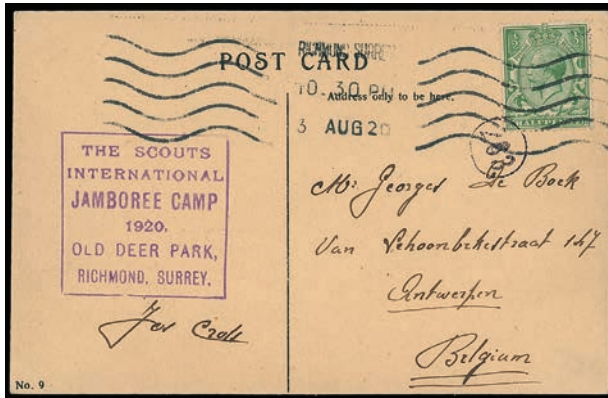 POST CARD
RICHMOND SURREY
10.30 PM
3 AUG 20
Address only to be here.
HALFPENNY
THE SCOUTS
INTERNATIONAL
JAMBOREE CAMP
1920.
OLD DEER PARK,
RICHMOND, SURREY.
Mr Georges De Boek
Van Schoonbekestraat 147
Antwerpen
Belgium
No. 9